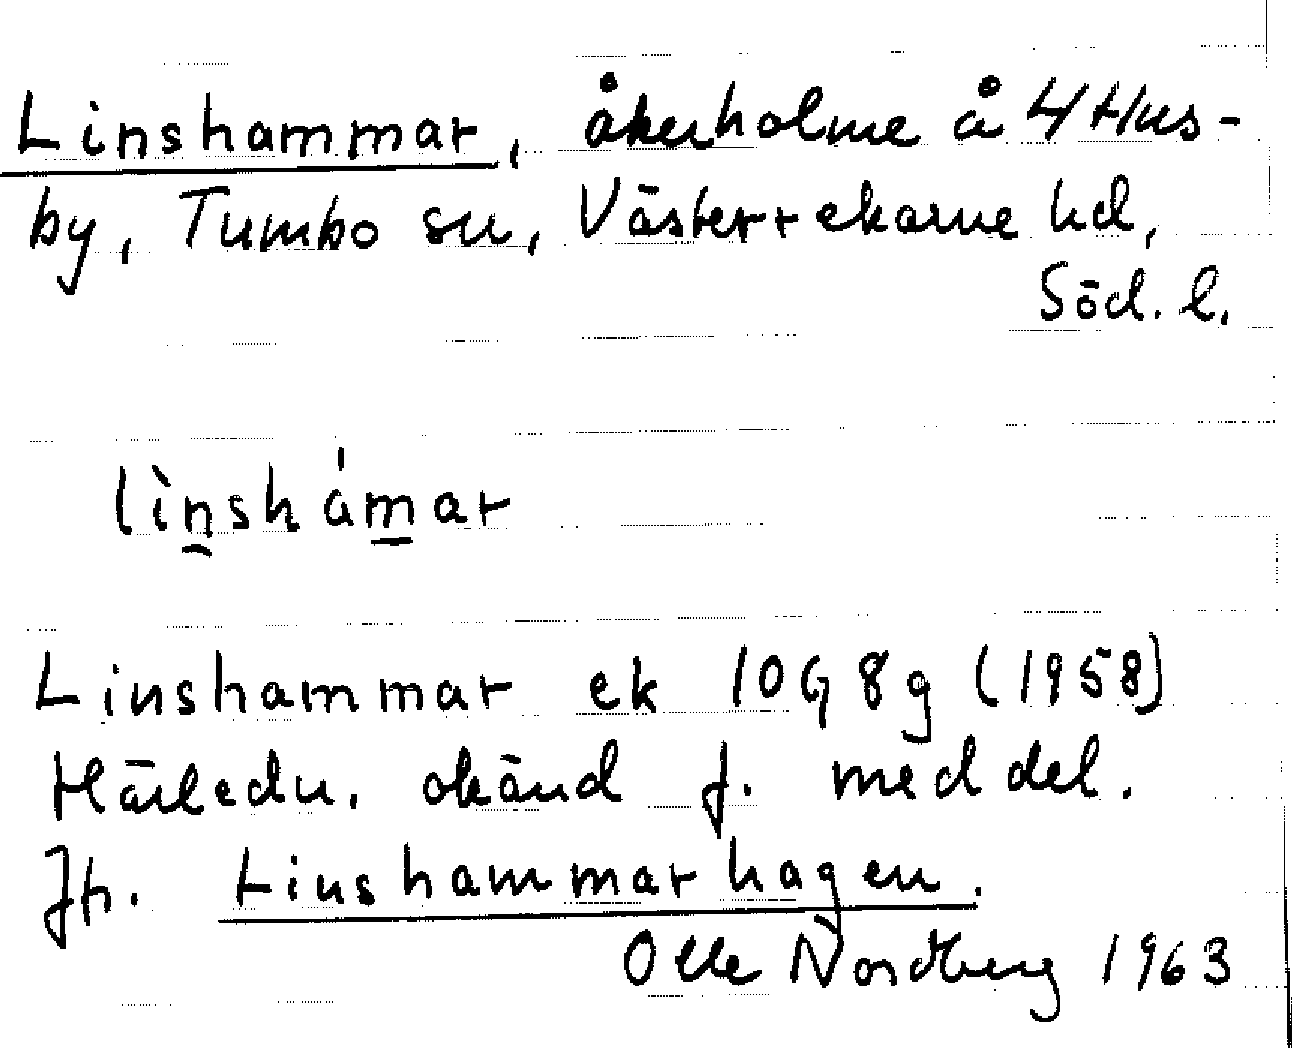 Linshammar, åkerholme å 4 Hus-
by, Tumbo sn, Västerrekarne hd,
Söd. l.
lìn̯shámar
Linshammar ek 10G 8g (1958)
Härledn. okänd f. meddel.
Jfr. Linshammarhagen.
Olle Nordberg 1963